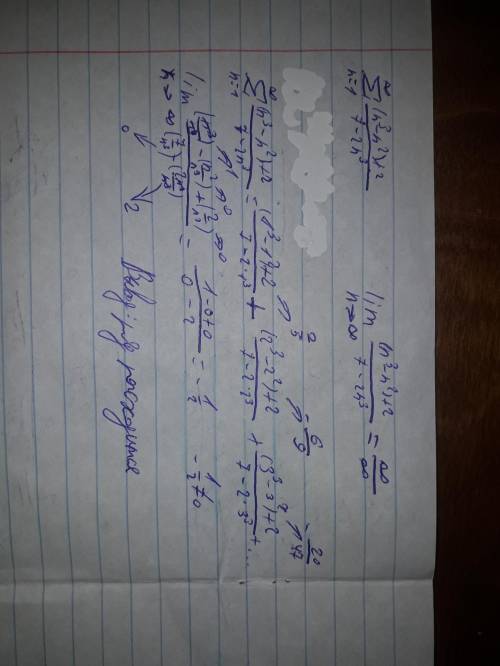 ∞ ∑ n=1 (n³-n²)+2 / 7-2n³   lim n→∞ (n³-n²)+2 / 7-2n³ = ∞/∞
∞ ∑ n=1 (n³-n²)+2 / 7-2n³ = (1³-1²)+2 / 7-2·1³ + (2³-2²)+2 / 7-2·2³ + (3³-3²)+2 / 7-2·3³ + ...
2/5   -6/9   -20/47
lim n→∞ (n³/n³) - (n²/n³) + (2/n³) / (7/n³) - (2n³/n³) = 1-0+0 / 0-2 = -1/2   -1/2 ≠ 0
1 0 0
0 2
расходится